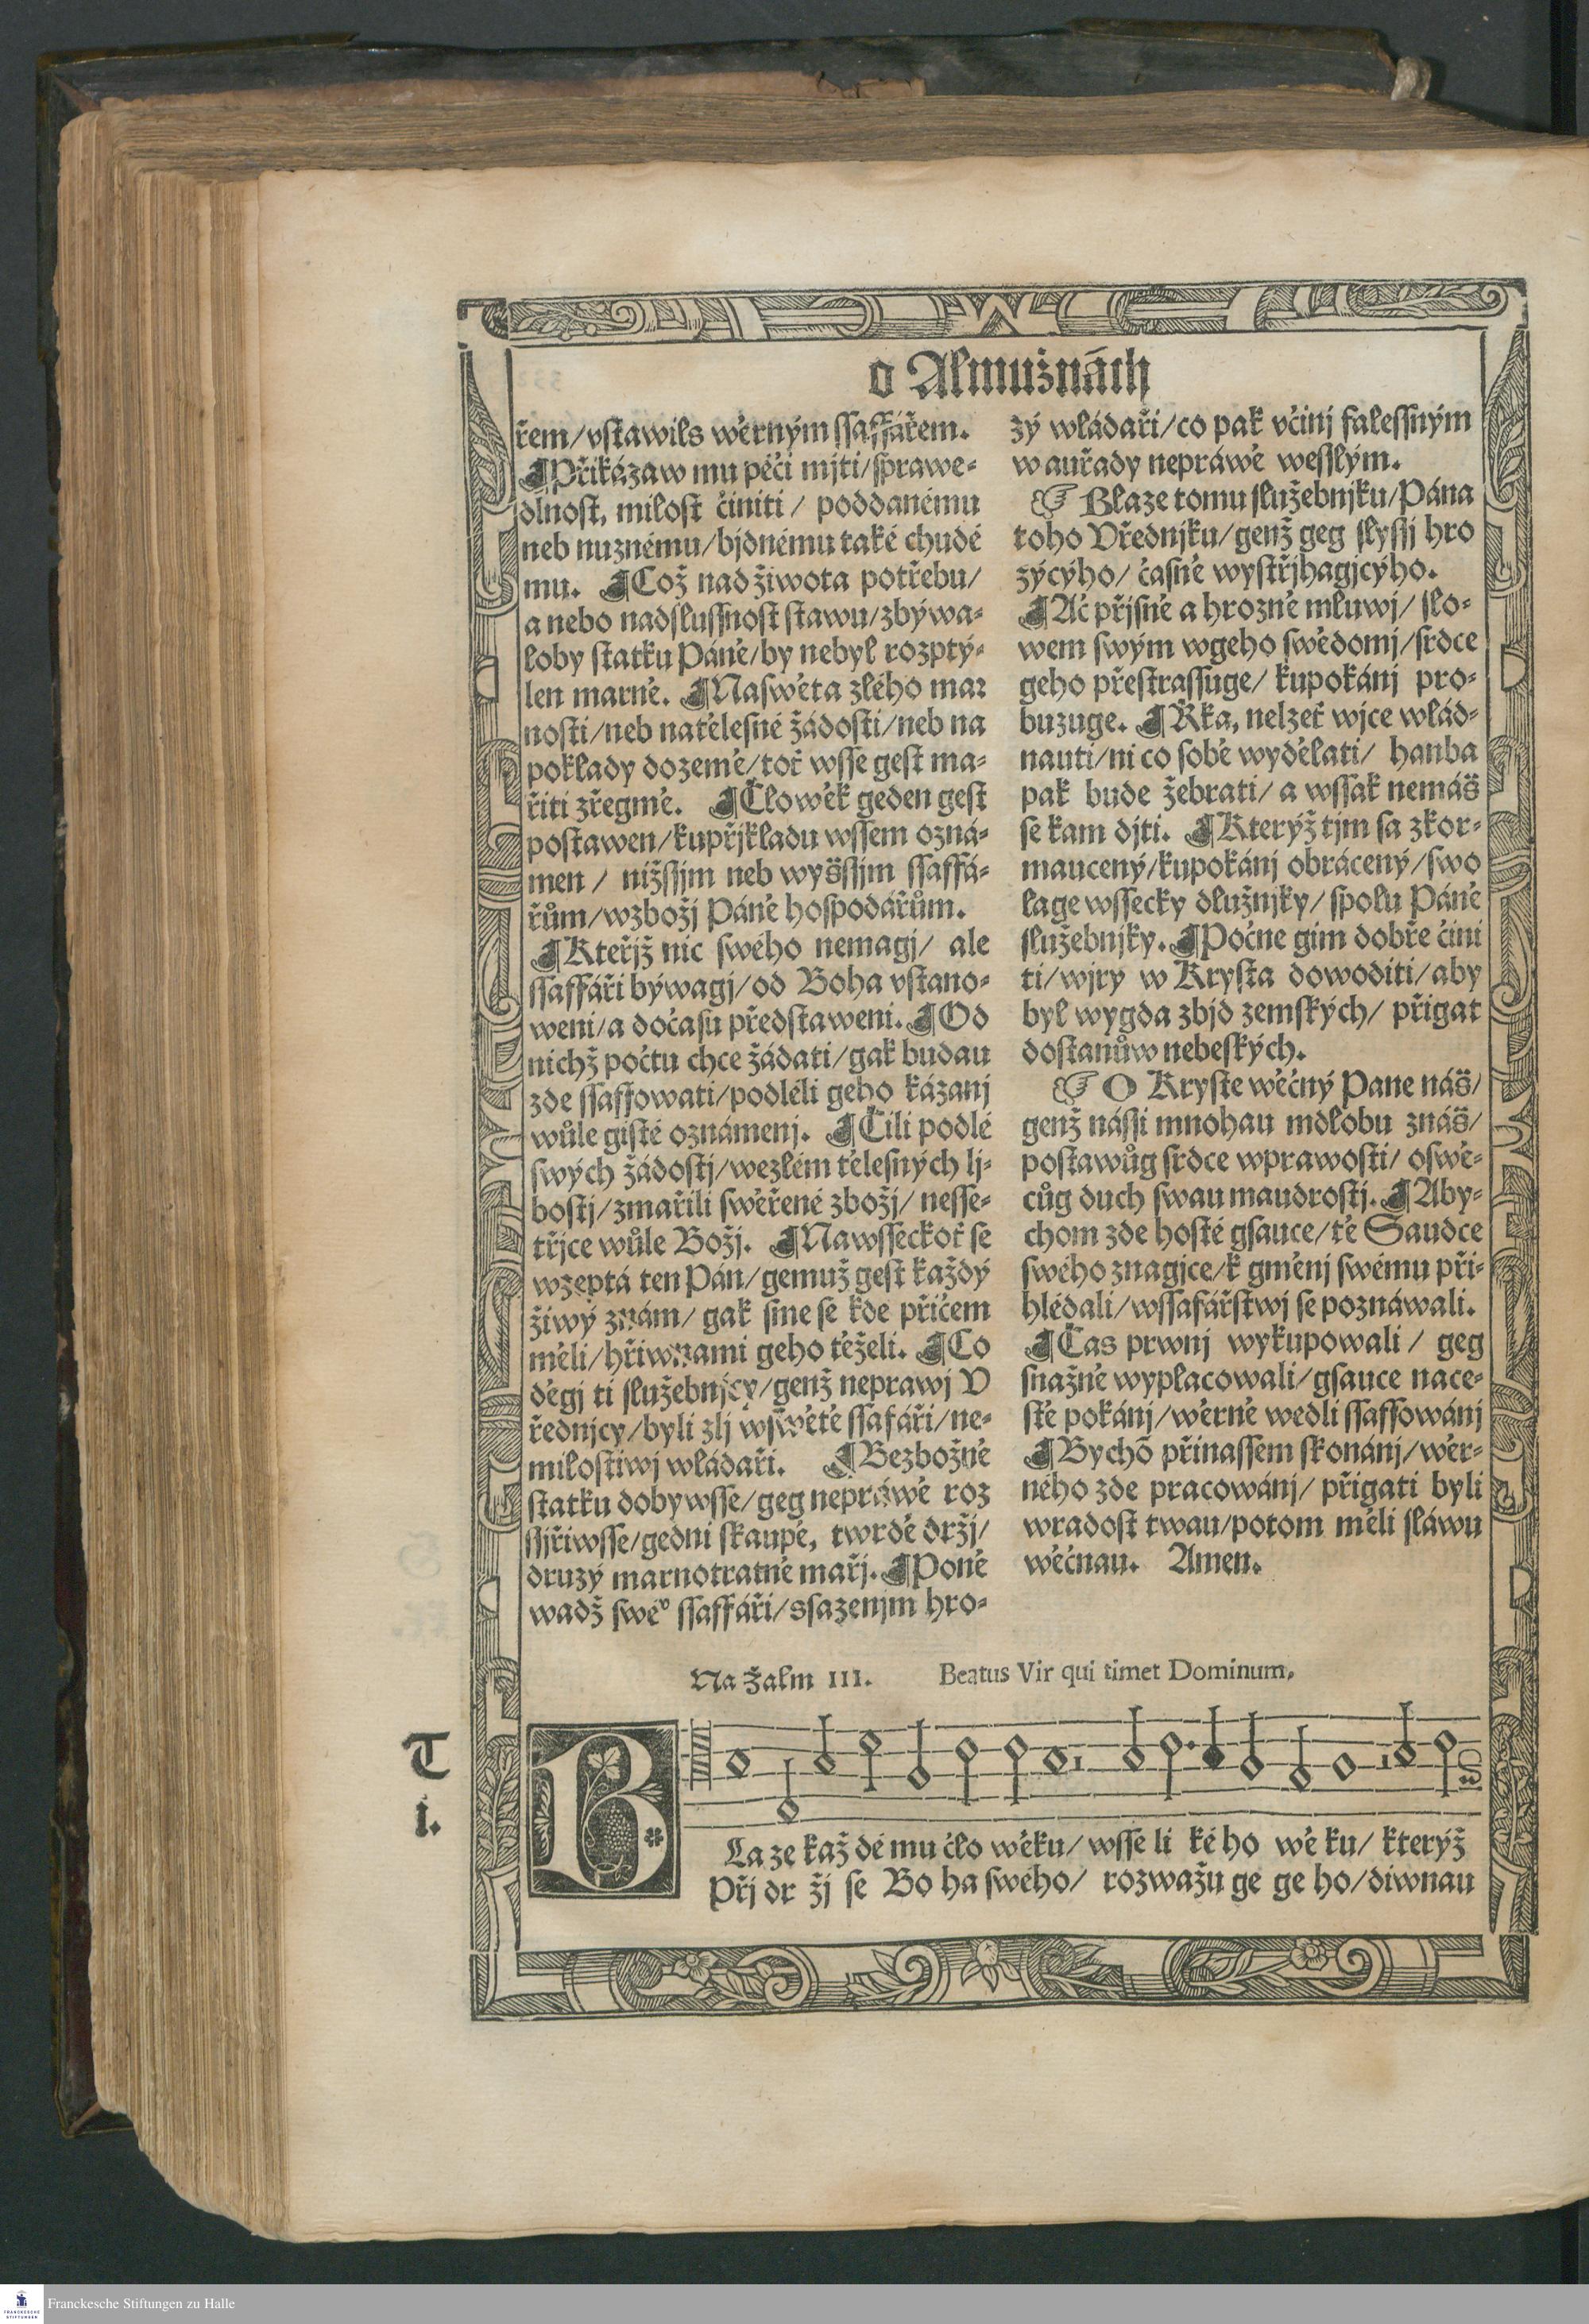 o Almužnãch
řem/vstawils wěrným ssaffářem.
¶Přikázaw mu péči mjti/sprawe-
dlnost, milost činiti / poddanému
neb nuznému/bjdnému také chudé
mu. ¶Což nad žiwota potřebu/
a nebo nadslussnost stawu/zbýwa-
loby statku Páně/by nebyl rozptý-
len marně. ¶Naswěta zlého mar
nosti/neb natělesné žádosti/neb na
poklady dozemě/toť wsse gest ma-
řiti zřegmě. ¶Člowěk geden gest
postawen/kupřjkladu wssem ozná-
men / nižssjm neb wyšssjm ssaffá-
řům/wzbožj Páně hospodářům.
¶Kteřjž nic swého nemagj/ ale
ssaffáři býwagj/od Boha vstano-
weni/a dočasu představeni. ¶Od
nichž počtu chce žádati/gak budau
zde ssaffowati/podléli geho kázanj
wůle gisté oznámenj. ¶Čili podlé
swých žádostj/wezlém tělesných lj-
bostj/zmařili swěřené zbožj/ nesse-
třjce wůle Božj. ¶Nawsseckoť se
wzeptá ten Pán/gemuž gest každý
žiwý znám/ gak sme se kde přičem
měli/hřiwnami geho těželi. ¶Co
děgj ti služebnjcy/genž neprawj V
řednjcy/byli zlj wswětě ssafáři/ne-
milostiwj wládaři. ¶Bezbožně
statku dobywsse/geg nepráwě roz
ssjřiwsse/gedni skaupě, twrdě držj/
druzý marnotratně mařj. ¶Poně
wadž swéº ssaffáři/ssazenjm hro-
zý wládaři/co pak včinj falessným
w auřady nepráwě wesslým.
☞ Blaze tomu služebnjku/Pána
toho Vřednjku/genž geg slyssj hro
zýcýho/ časně wystřjhagjcýho.
¶Ač přjsně a hrozně mluwj/ slo-
wem swým wgeho swědomj/srdce
geho přestrassuge/ kupokánj pro-
buzuge. ¶Řka, nelzeť wjce wlád-
nauti/ni co sobě wydělati/ hanba
pak bude žebrati/ a wssak nemáš
se kam djti. ¶Kterýž tjm sa zkor-
maucený/kupokánj obrácený/swo
lage wssecky dlužnjky/ spolu Páně
služebnjky. ¶Počne gim dobře čini
ti/wjry w Krysta dowoditi/aby
byl wygda zbjd zemských/ přigat
dostanůw nebeských.
☞ O Kryste wěčný Pane náš/
genž nássi mnohau mdlobu znáš/
postawůg srdce wprawosti/ oswě-
cůg duch swau maudrostj. ¶Aby-
chom zde hosté gsauce/tě Saudce
swého znagjce/k gměnj swému při-
hlédali/wssafářstwj se poznáwali.
¶Čas prwnj wykupowali / geg
snažně wyplacowali/gsauce nace-
stě pokánj/wěrně wedli ssaffowánj
¶Bychõ přinassem skonánj/wěr-
ného zde pracowánj/ přigati byli
wradost twau/potom měli sláwu
wěčnau. Amen.
Na Žalm III. Beatus Vir qui timet Dominum.
T
i.
B
La ze kaž dé mu člo wěku/ wsse li ké ho wě ku/ kterýž
Přj dr žj se Bo ha swého/ rozwažu ge ge ho/diwnau
FRANCKESCHE STIFTUNGEN
Franckesche Stiftungen zu Halle